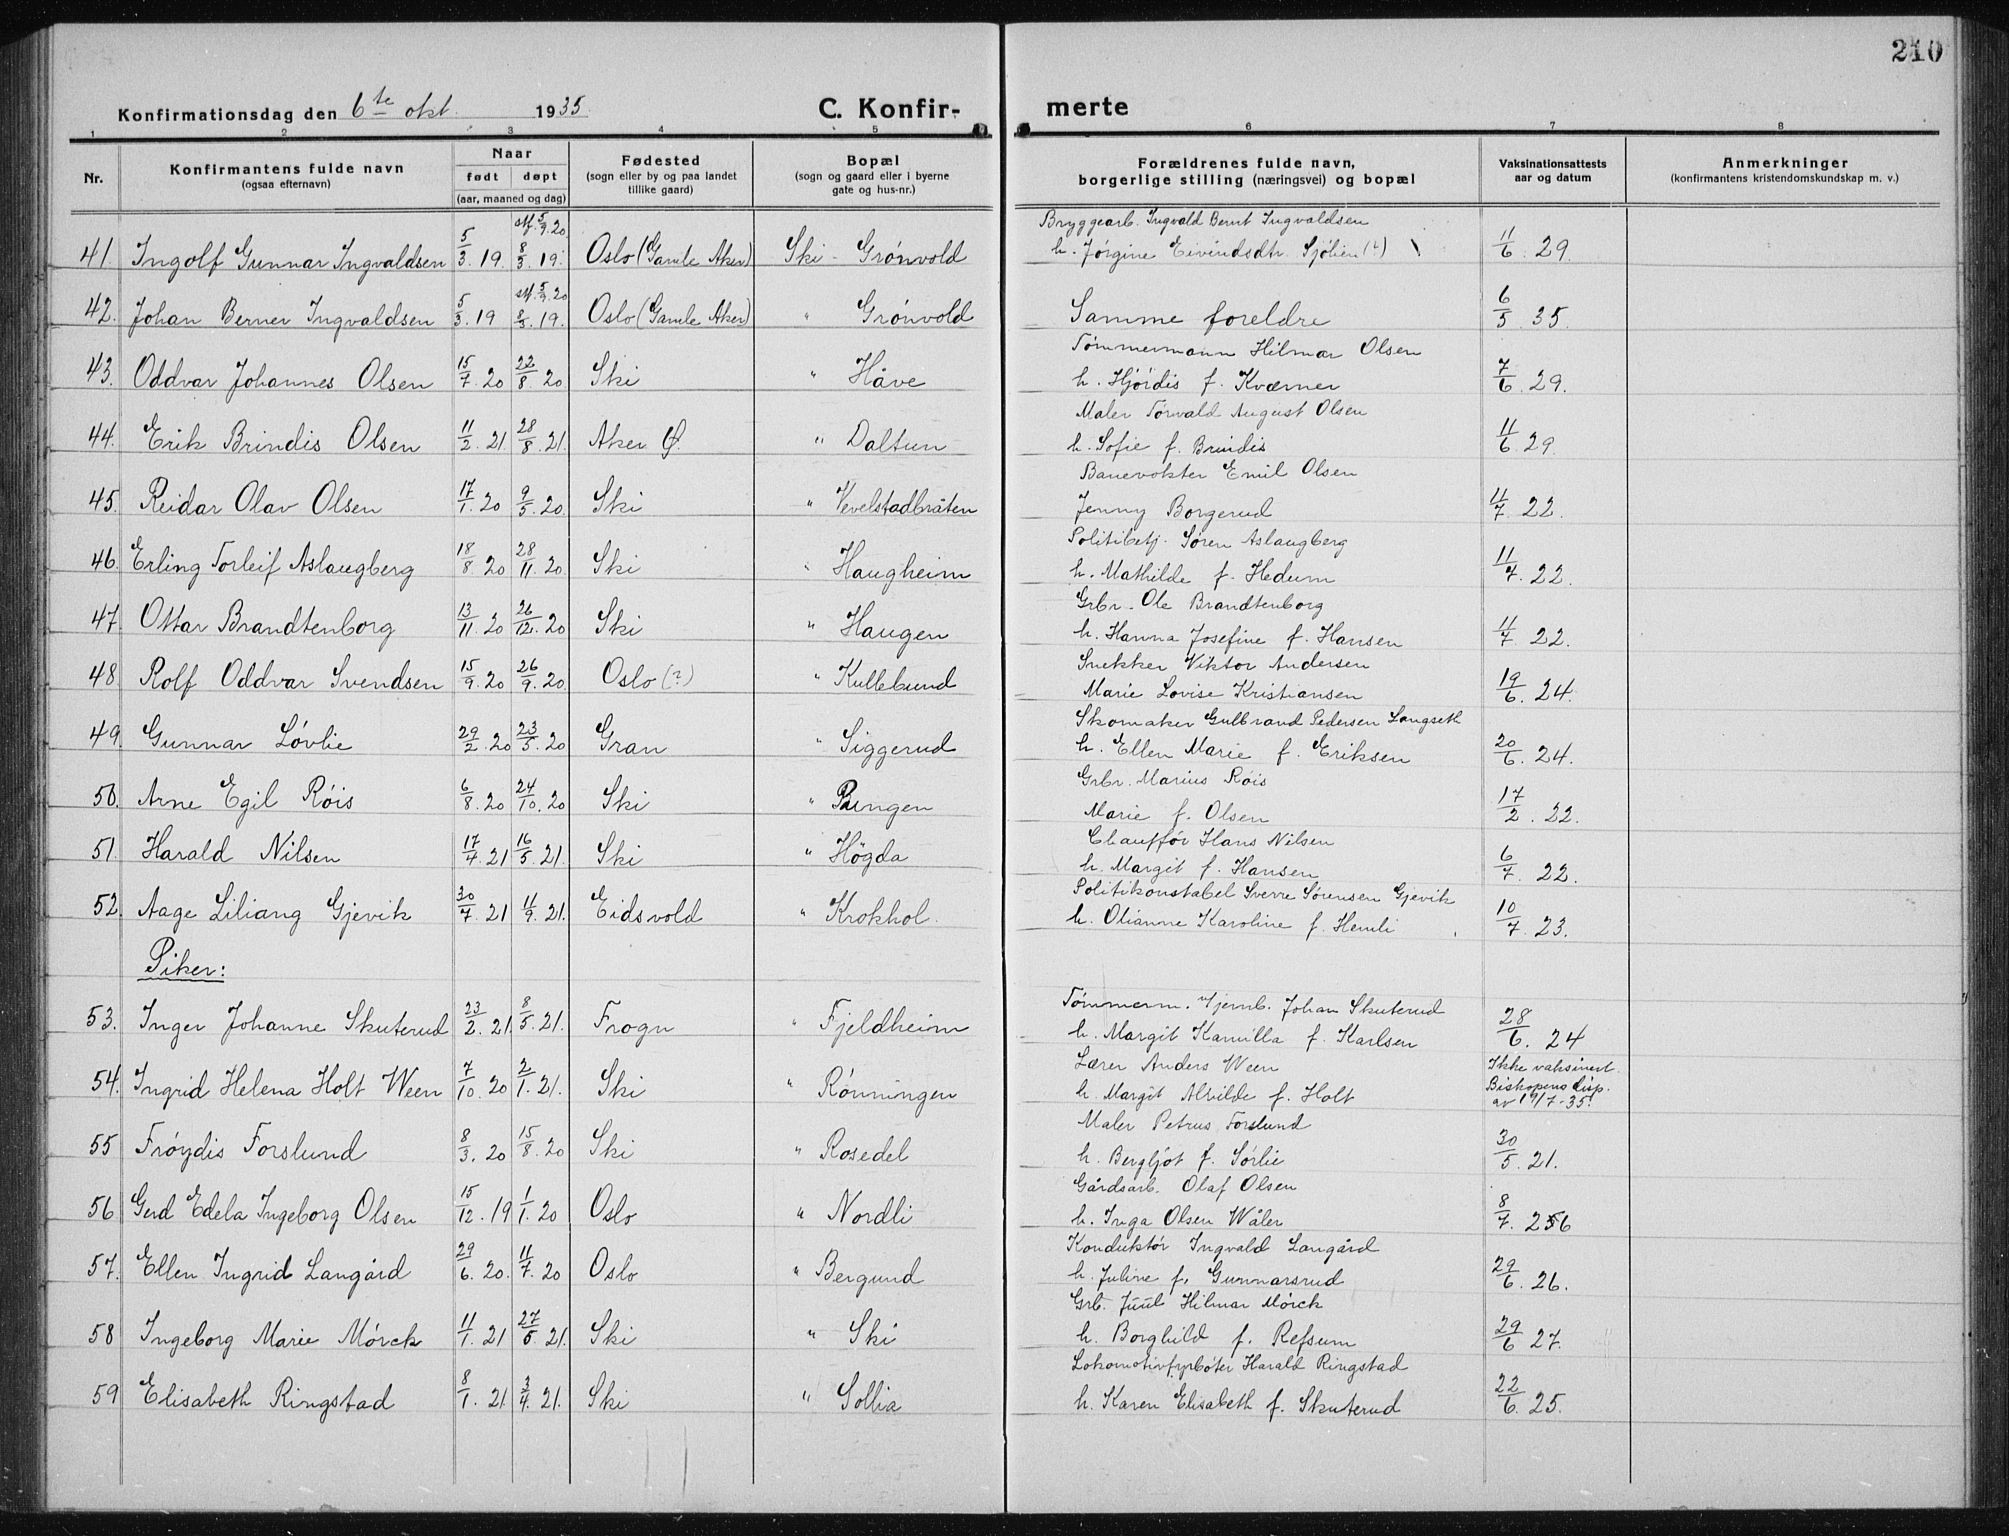 210
Konfirmationsdag den 6te okt. 1935. C. Konfir- merte
1 2 3 4 5 6 7 8
Nr. Konfirmantens fulde navn (ogsaa efternavn) Naar født døpt (aar, maaned og dag) Fødested (sogn eller by og paa landet tillike gaard) Bopæl (sogn og gaard eller i byerne gate og hus-nr.) Forældrenes fulde navn, borgerlige stilling (næringsvei) og bopæl Vaksinationsattests aar og datum Anmerkninger (konfirmantens kristendomskundskap m. v.)
stf. 5/9.20 Bryggearb. Ingvald Bernt Ingvaldsen
41. Ingolf Gunnar Ingvaldsen 5/3.19. 8/3.19. Oslo (Gamle Aker) Ski - Grönvold h. Jørgine Eivindsdtr. Sjölien (?) 11/6.29.
stf. 5/9.20
42. Johan Berner Ingvaldsen 5/3.19 8/3.19. Oslo (Gamle Aker) " Grönvold Samme foreldre 6/5.35.
Tömmermann Hilmar Olsen
43. Oddvar Johannes Olsen 15/7.20 22/8.20 Ski " Håve h. Hjördis f. Kværner 7/6.29.
Maler Torvald August Olsen
44. Erik Brindis Olsen 11/2.21. 28/8.21. Aker Ø. " Daltun h. Sofie f. Brindis 11/6.29.
Banevokter Emil Olsen
45. Reidar Olav Olsen 17/1.20 9/5.20. Ski " Vevelstadbråten Jenny Borgerud 11/7.22.
Politibetj. Sören Aslaugberg
46. Erling Torleif Aslaugberg 18/8.20 28/11.20. Ski " Haugheim h. Mathilde f. Hedum 11/7.22.
Grbr. Ole Brandtenborg
47. Ottar Brandtenborg 13/11.20 26/12.20 Ski " Haugen h. Hanna Josefine f. Hansen 11/7.22.
Snekker Viktor Andersen
48. Rolf Oddvar Svendsen 15/9.20 26/9.20. Oslo (?) " Kullebund Marie Lovise Kristiansen 19/6.24.
Skomaker Gulbrand Pedersen Langseth
49. Gunnar Lövlie 29/2.20 23/5.20 Gran " Siggerud h. Ellen Marie f. Eriksen 20/6.24.
Grbr. Marius Röis
50. Arne Egil Röis 6/8.20 24/10.20 Ski " Bungen Marie f. Olsen 17/2.22.
Chauffør Hans Nilsen
51. Harald Nilsen 17/4.21 16/5.21. Ski " Högda h. Margit f. Hansen 6/7.22.
Politikonstabel Sverre Sörensen Gjevik
52. Aage Liliang Gjevik 30/7.21 11/9.21. Eidsvold " Krokhol. h. Olianne Karoline f. Hemli 10/7.23.
Piker:
Tömmerm. Hjemb. Johan Skuterud
53. Inger Johanne Skuterud 23/2.21. 8/5.21. Frogn " Fjeldheim h. Margit Kamilla f. Karlsen 28/6.24
Lærer Anders Ween Ikke vaksinert.
54. Ingrid Helena Holt Ween 7/10.20 2/1.21. Ski " Rönningen h. Margit Alvilde f. Holt Biskopens disp. av 19/7-35.
Maler Petrus Forslund
55 Fröydis Forslund 8/3.20 15/8.20 Ski " Rosedel h. Bergljot f. Sörlie 30/5.21.
Gårdsarb. Olaf Olsen
56 Gerd Edela Ingeborg Olsen 15/12.19 1/1.20 Oslo " Nordli h. Inga Olsen Wåler 8/7.26
Konduktör Ingvald Langård
57. Ellen Ingrid Langård 29/6.20. 11/7.20 Oslo " Bergund h. Juline f. Gunnarsrud 29/6.26.
Grb. Juul Hilmar Mörck
58 Ingeborg Marie Mörck 11/1.21 27/5.21. Ski " Ski h. Borghild f. Refsum 29/6.27.
Lokomotivfyrböter Harald Ringstad
59 Elisabeth Ringstad 8/1.21. 3/4.21. Ski " Sollia h. Karen Elisabeth f. Skuterud 22/6.25.